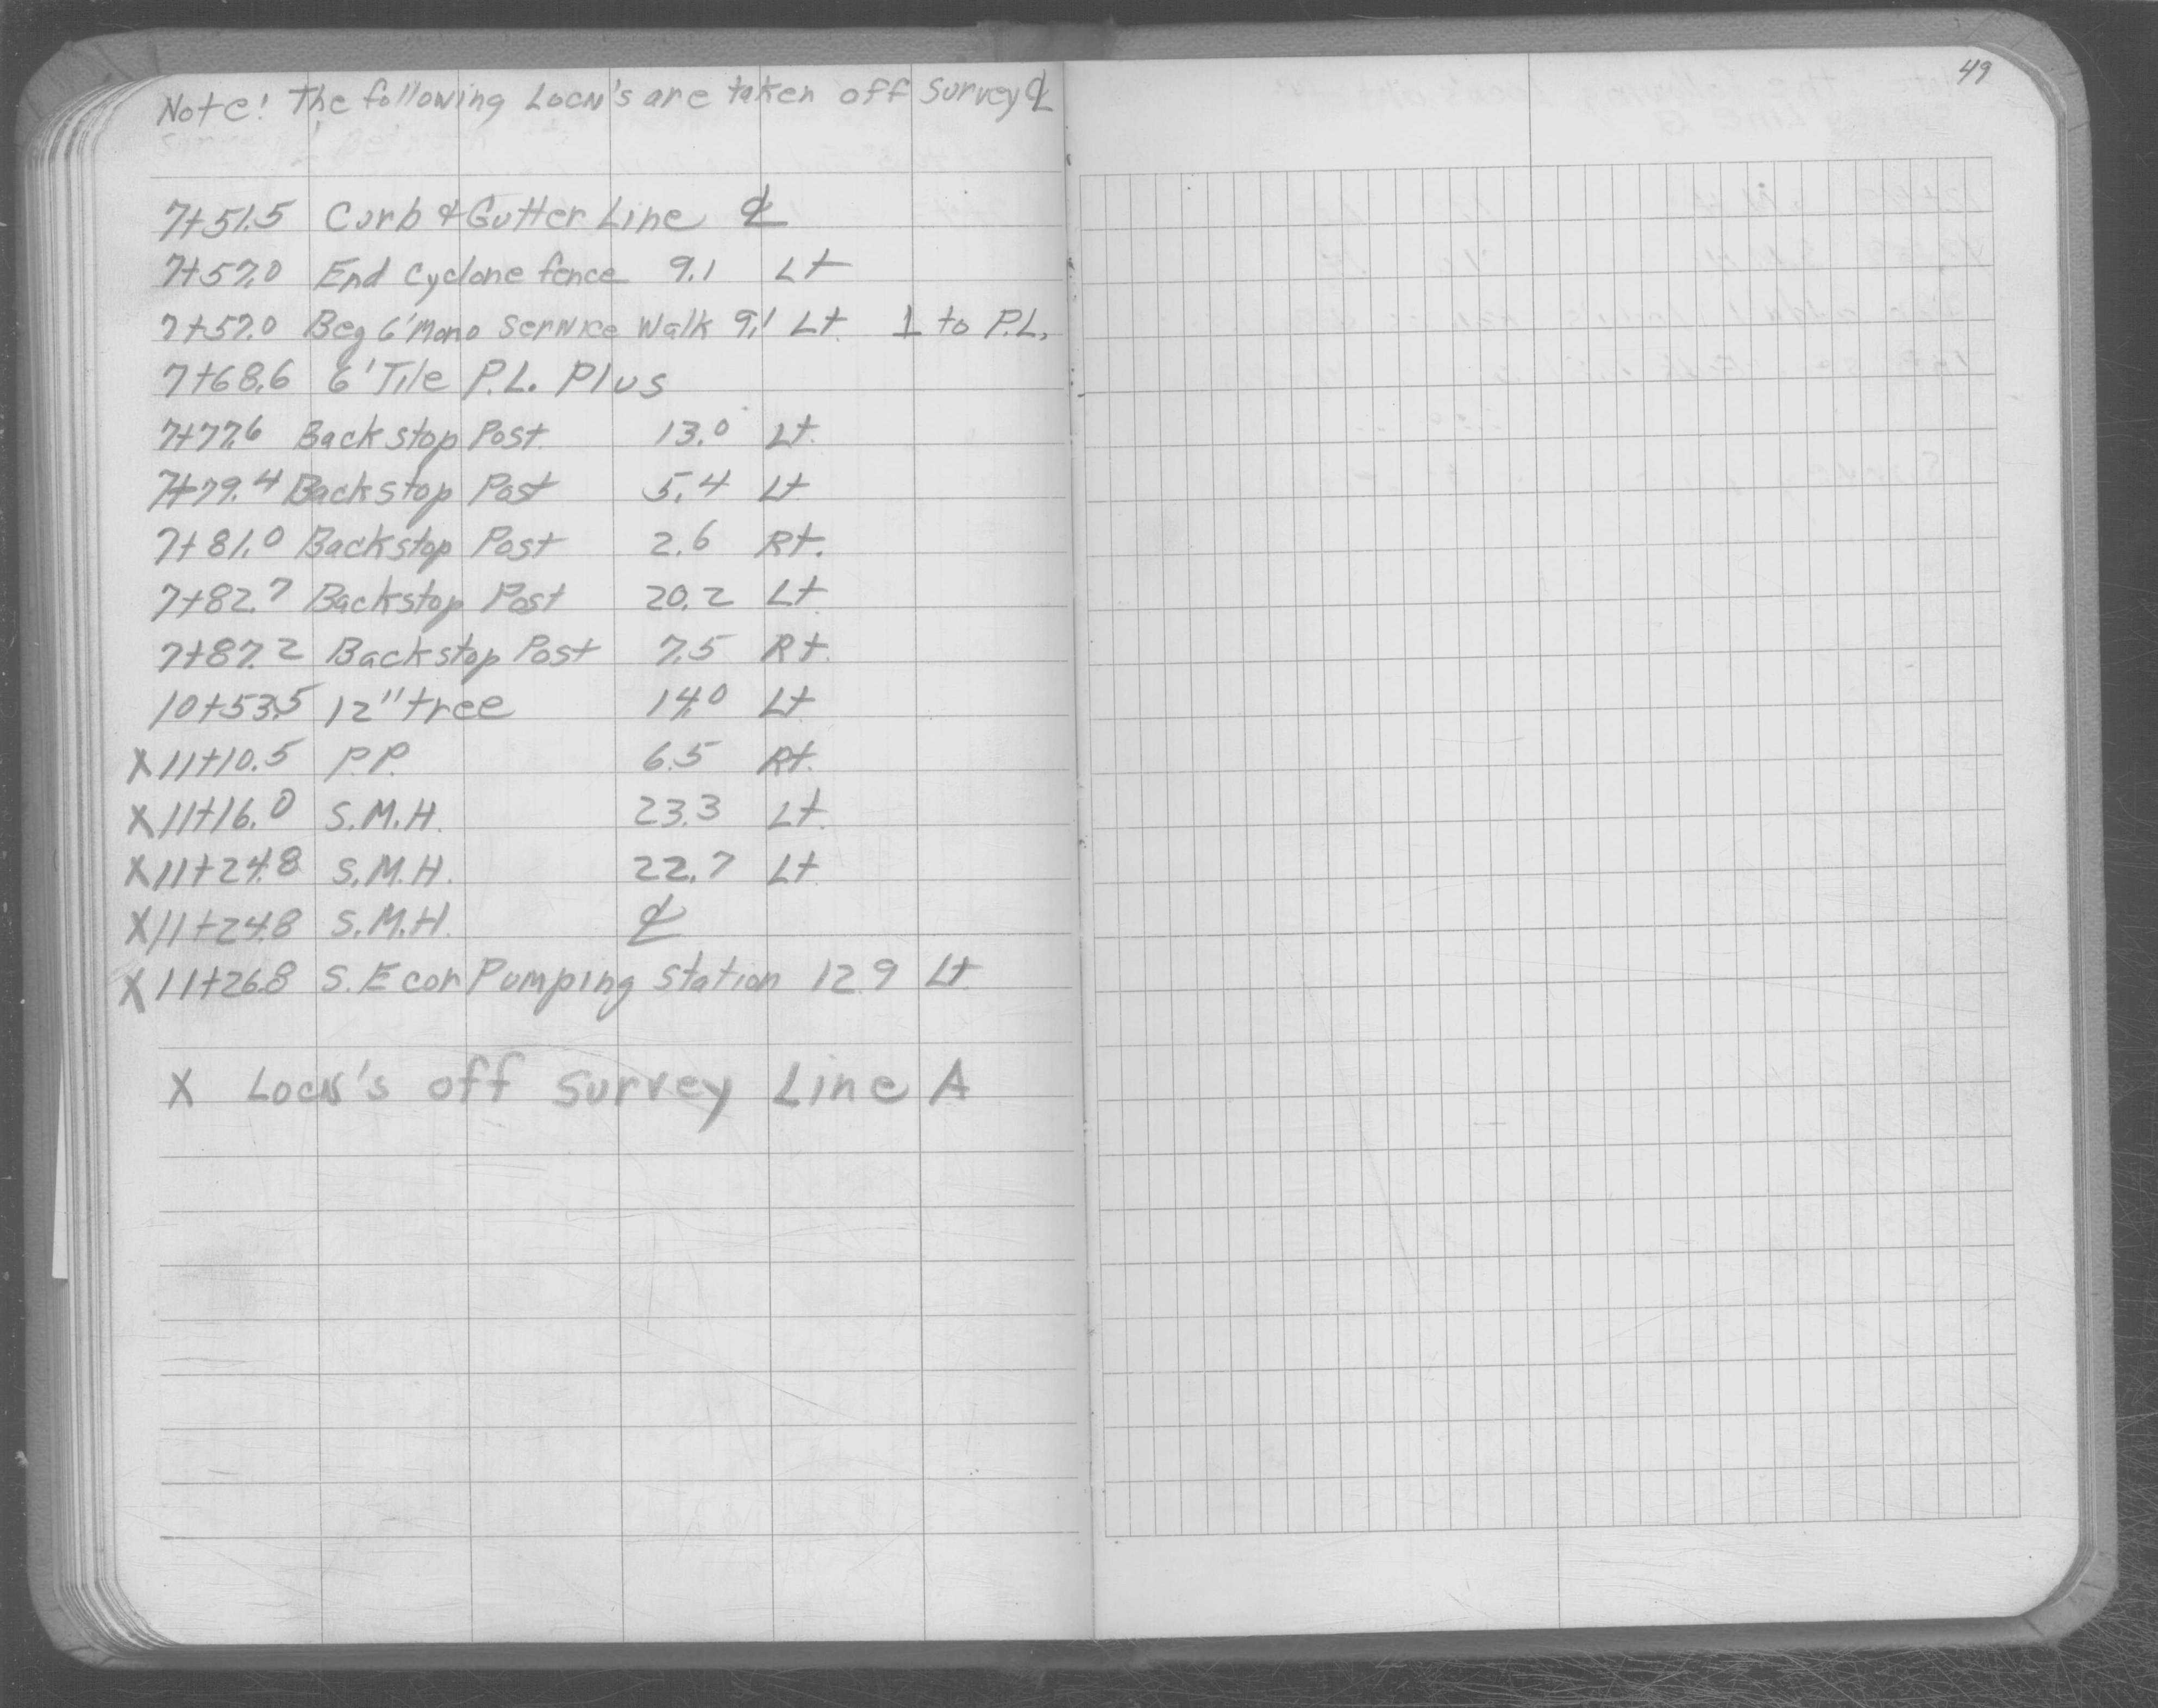 49
Note! The following Locn's are taken off Survey ℄
7+51.5 Curb & Gutter Line ℄
7+57.0 End Cyclone fence 9.1 Lt
7+57.0 Beg 6' Mono Service Walk 9.1 Lt. ⊥ to P.L.
7+68.6 6' Tile P.L. Plus
7+77.6 Backstop Post 13.0 Lt.
7+79.4 Backstop Post 5.4 Lt
7+81.0 Backstop Post 2.6 Rt.
7+82.7 Backstop Post 20.2 Lt
7+87.2 Backstop Post 7.5 Rt.
10+53.5 12" tree 14.0 Lt
X 11+10.5 P.P. 6.5 Rt.
X 11+16.0 S.M.H. 23.3 Lt.
X 11+24.8 S.M.H. 22.7 Lt
X 11+24.8 S.M.H. ℄
X 11+26.8 S.E cor Pumping Station 12.9 Lt
X Locn's off Survey Line A